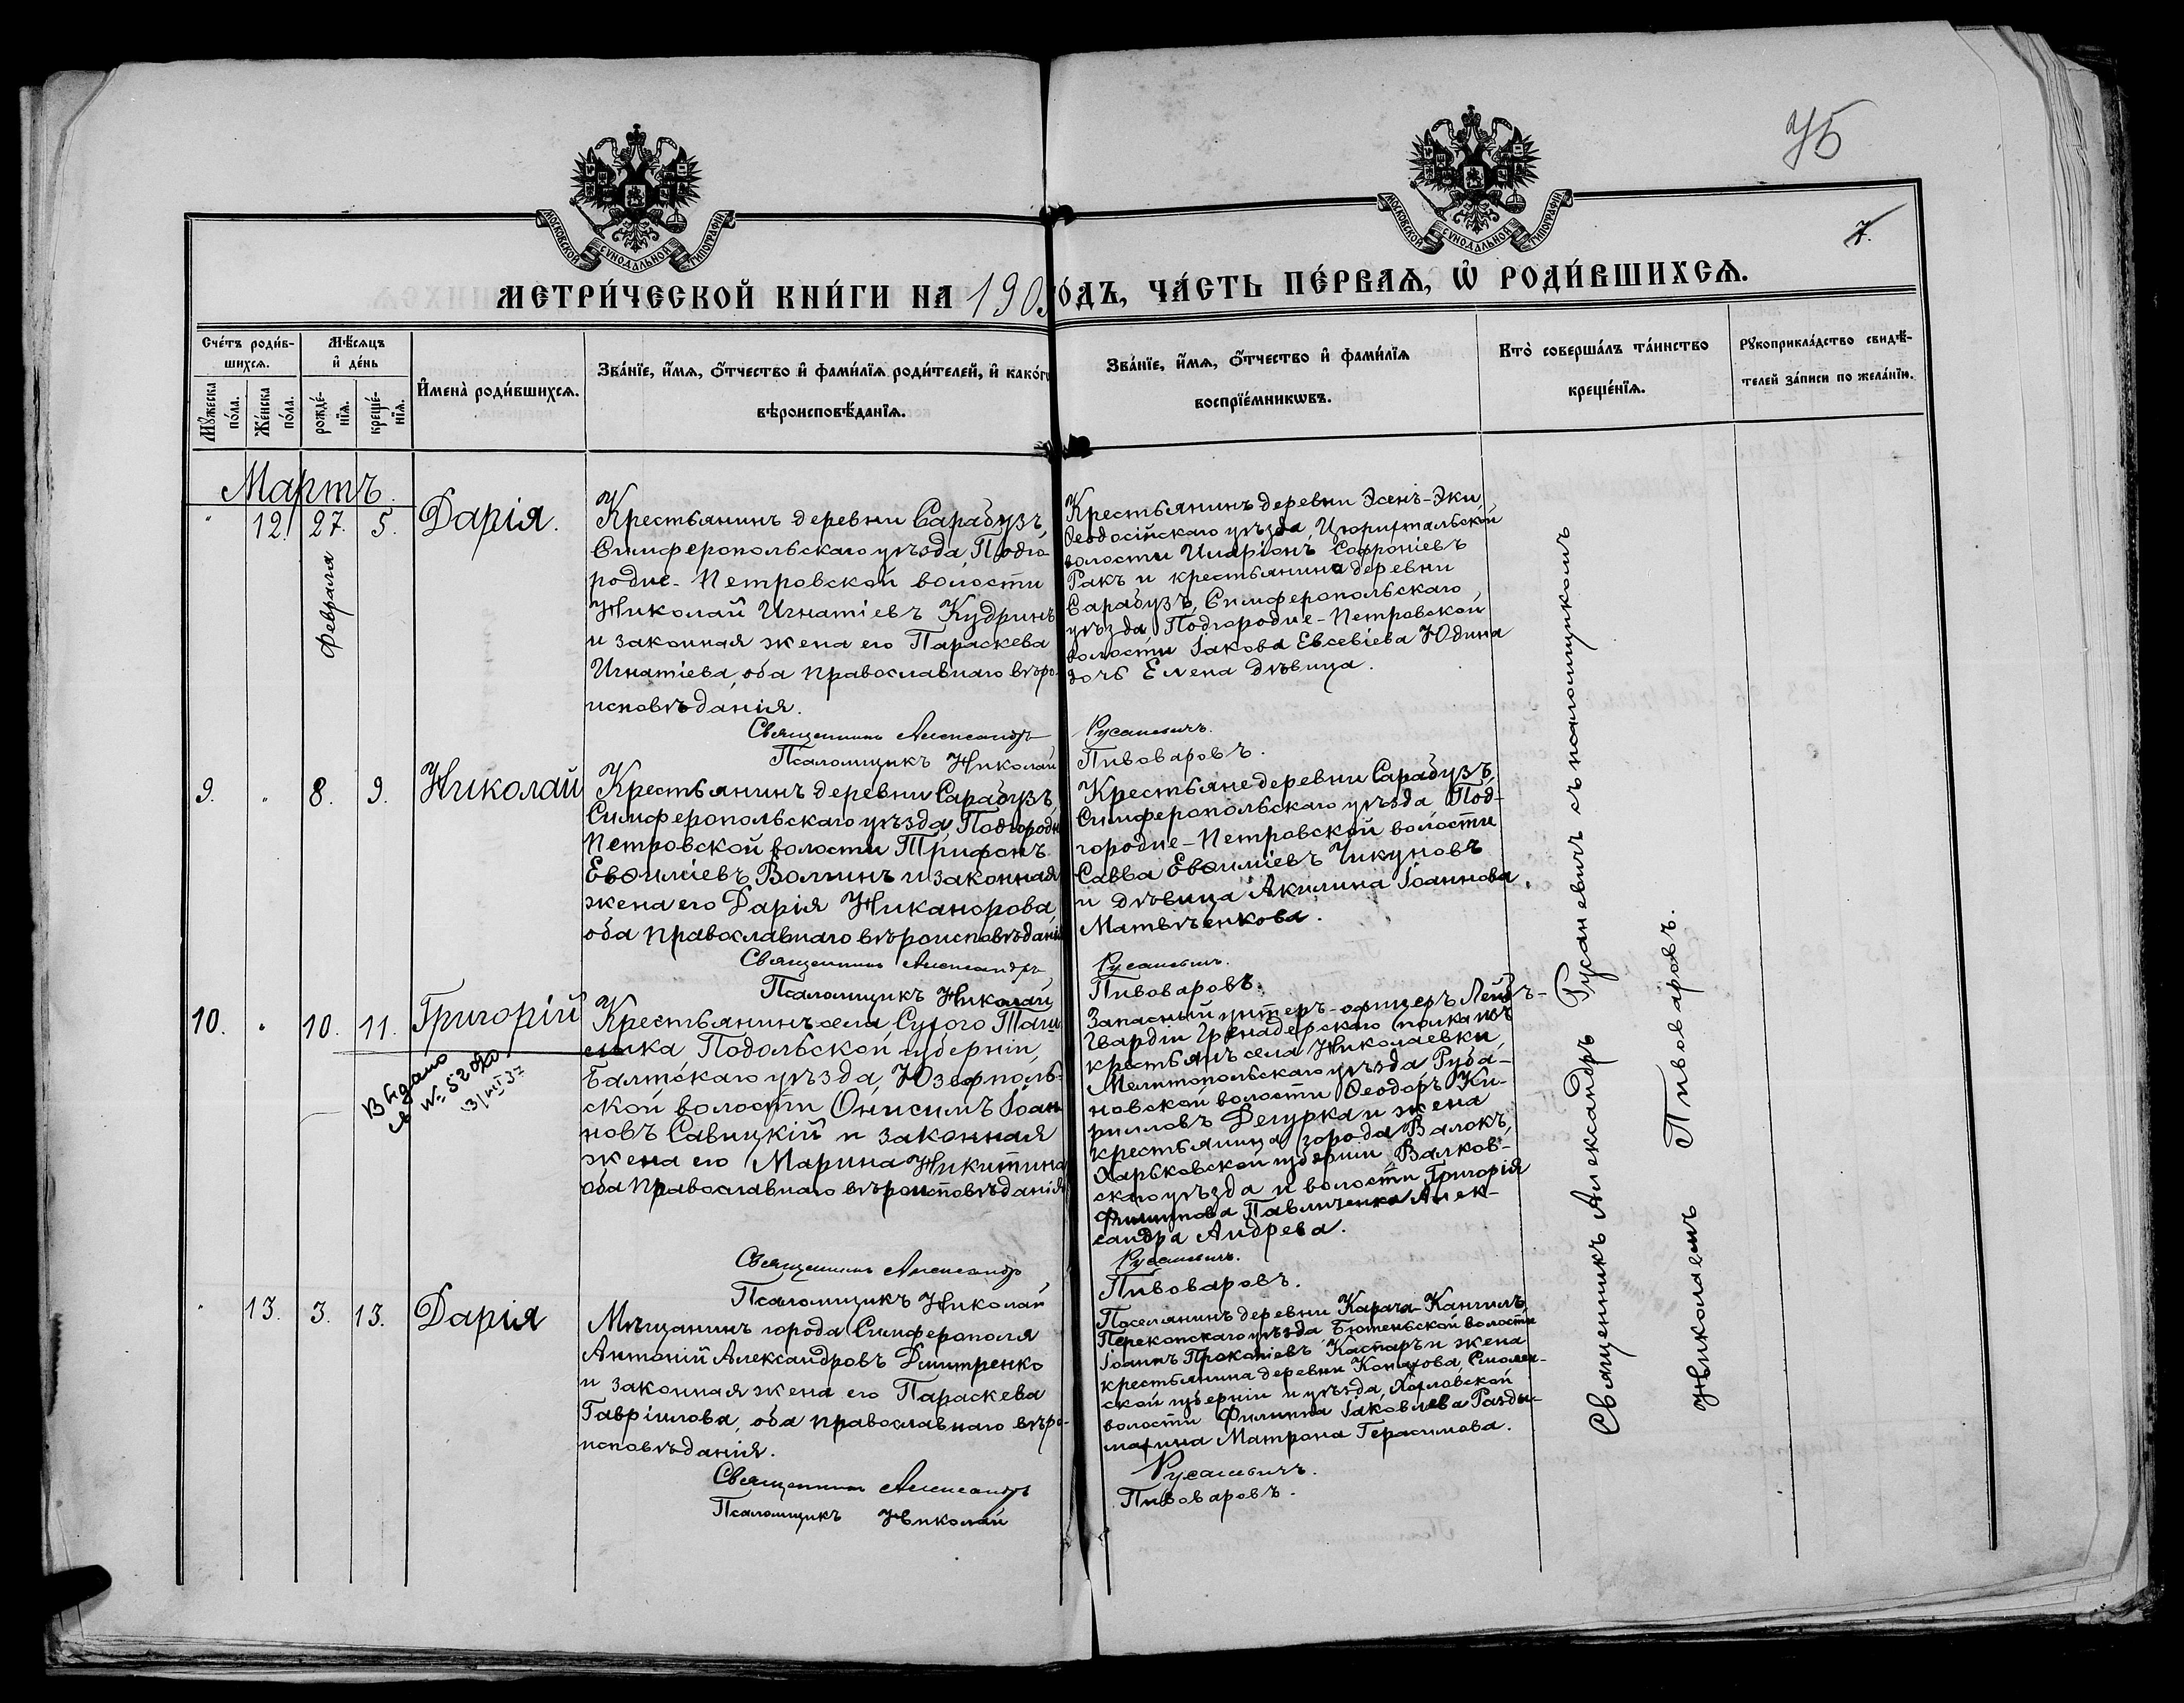 75
7.
МОСКОВСКОЙ СѴНОДАЛЬНОЙ ТИПОГРАФІИ
МОСКОВСКОЙ СѴНОДАЛЬНОЙ ТИПОГРАФІИ
МЕТРИ́ЧЕСКОЙ КНИ́ГИ НА 190
ОДЪ, ЧА́СТЬ ПЕ́РВАѦ, Ѡ҆ РОДИ́ВШИХСѦ.
Сче́тъ роди́в-
шихсѧ.
Мꙋ́жеска по́ла.
Же́нска по́ла.
Мѣ́сѧцъ
и҆ де́нь
рожде́-нїѧ.
креще́-нїѧ.
И҆мена̀ роди́вшихсѧ.
Зва́нїе, и҆́мѧ, ѻ҆́тчество и҆ фами́лїѧ роди́телей, и҆ како́гѡ
вѣроисповѣ́данїѧ.
Зва́нїе, и҆́мѧ, ѻ҆́тчество и҆ фами́лїѧ
воспрїе́мникѡвъ.
Кто̀ соверша́лъ та́инство
креще́нїѧ.
Рꙋкоприкла́дство свидѣ́-
телей за́писи по жела́нїю.
Мартъ.
" 12. 27. 5. Дарія.
февраля
Крестьянинъ деревни Сарабузъ,
Симферопольскаго уѣзда, Подго-
родне-Петровской волости
Николай Игнатіевъ Кудринъ
и законная жена его Параскева
Игнатіева, оба православнаго вѣро-
исповѣданія.
Священникъ Александръ
Псаломщикъ Николай
Крестьянинъ деревни Эсенъ-Эки
Ѳеодосійскаго уѣзда, Цюрихтальской
волости Иларіонъ Софроніевъ
Ракъ и крестьянина деревни
Сарабузъ, Симферопольскаго
уѣзда, Подгородне-Петровской
волости Іакова Евсевіева Юдина
дочь Елена дѣвица.
Русаневичъ.
Пивоваровъ.
9. " 8. 9. Николай
Крестьянинъ деревни Сарабузъ,
Симферопольскаго уѣзда, Подгородне
Петровской волости Трифонъ
Евѳиміевъ Волминъ и законная
жена его Дарія Никанорова,
оба православнаго вѣроисповѣданія
Священникъ Александръ
Псаломщикъ Николай
Крестьяне деревни Сарабузъ,
Симферопольскаго уѣзда, Под-
городне-Петровской волости
Савва Евѳиміевъ Чикуновъ
и дѣвица Акилина Іоаннова
Матвѣенкова.
Русаневичъ.
Пивоваровъ.
10. " 10. 11. Григорій
Выдано
св № 52
3/VII 37
Крестьянинъ села Сухого Таш
лыка Подольской губерніи,
Балтскаго уѣзда, Юзефполь-
ской волости Онисимъ Іоан
новъ Савицкій и законная
жена его Марина Никитина
оба православнаго вѣроисповѣданія
Священникъ Александръ
Псаломщикъ Николай
Запасный унтеръ-офицеръ Лейбъ-
Гвардіи Гренадерскаго полка изъ
крестьянъ села Николаевки,
Мелитопольскаго уѣзда, Руба-
новской волости Ѳеодоръ Ки-
рилловъ Дегурка и жена
крестьянина города Валокъ,
Харьковской губерніи Валков-
скаго уѣзда и волости Григорія
Филиппова Павличенка Алек-
сандра Андреева.
Русаневичъ.
Пивоваровъ.
" 13. 3. 13. Дарія
Мѣщанинъ города Симферополя
Антоній Александровъ Дмитренко
и законная жена его Параскева
Гавріилова, оба православнаго вѣро-
исповѣданія.
Священникъ Александръ
Псаломщикъ Николай
Поселянинъ деревни Карача-Кангилъ,
Перекопскаго уѣзда, Бютеньской волости
Іоаннъ Прокопіевъ Каспаръ и жена
крестьянина деревни Конахова, Смолен-
ской губерніи и уѣзда, Хохловской
волости Филиппа Іаковлева Разды-
махина Матрона Герасимова.
Русаневичъ.
Пивоваровъ.
Священникъ Александръ Русаневичъ съ псаломщикомъ
Николаемъ Пивоваровъ.